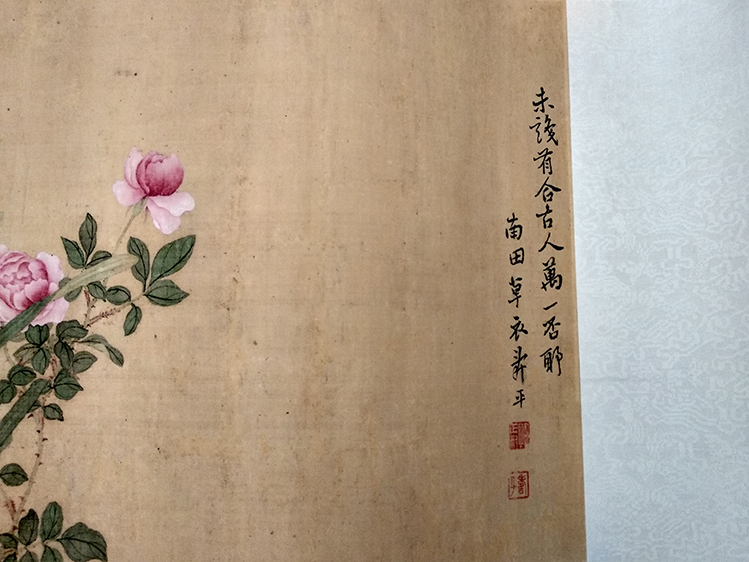 未識有合古人萬一否耶
南田草衣壽平